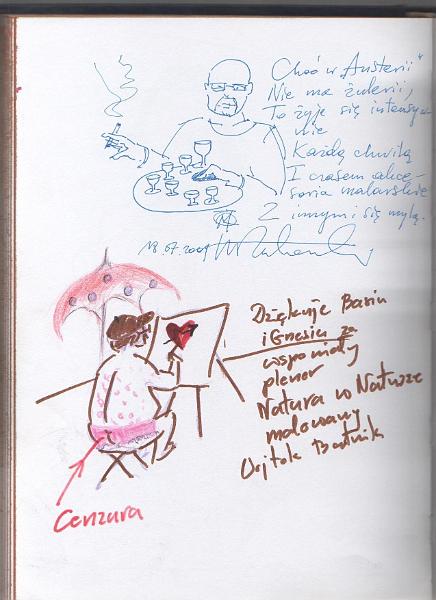 Choć w Austerii
Nie ma żulerii,
To żyje się intensyw
nie
Każdą chwilą
I czasem akce-
soria malarskie
Z innymi się mylą.
18.07.2009
Dziękuję Basiu
i Gnesiu za
wspaniały
plener
Natura w Naturze
malowany
Wojtek
Cenzura